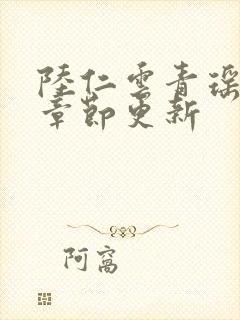 陸仁雲青瑶
章節更新
阿窩